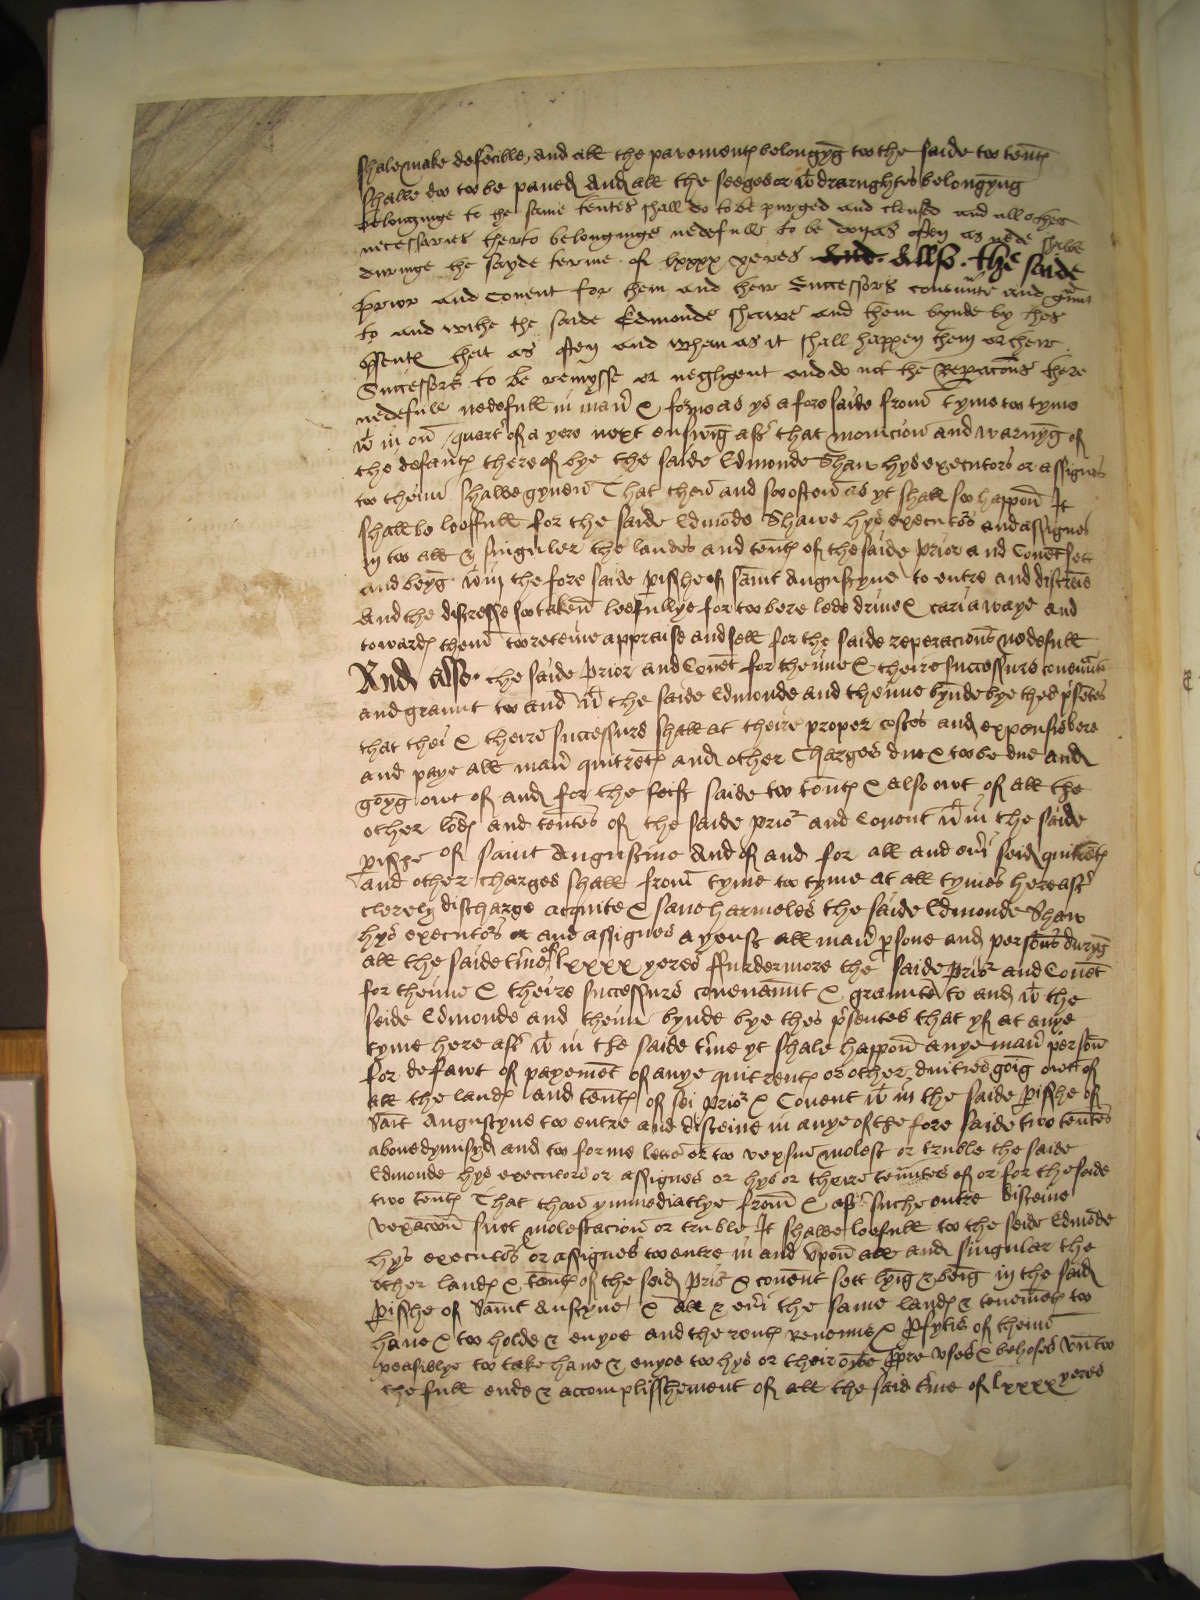 shale make defecible, and all the pavementꝭ belongyḡ too the saide too tentꝭ
shalbe doo too be paued And all the seeges or wt drawghtes belongyng
belonginge to the same tentes shall do to be purged and clensed and all other
necessaries therto belonginge nedefulle to be don as often as nede shalbe
duringe the sayde terme of lxxxx yeres And. Allso. the saide
Prior and Covent for them and their Successors covenūte and grūnt
to and withe the saide Edmonde Shawe and them bynde by thes
psentꝭ that as often and when as it shall happen them or their
Successors to be remysse or negligent and do not the Reparacōns there
nedefull nedefull in man̄ & forme as ys afore saide from tyme too tyme
wt in on quart of a yere next ensuīg aft that monicion and warnyḡ of
the defautꝭ there of bye the saide Edmonde Shaw hys executors or assignes
too theim shalbe gyuen That then and soo often as yt shall soo happon It
shall be leeffull for the saide Edmōde Shawe hys executors and assignes
in too all & singuler the landes and tentꝭ of the saide Prior and Covēt sett
and beyḡ wtin the fore saide pisshe of saint Augustyne to entre and distreine
And the distresse soo taken leefullye for too bere lede driue & cari awaye and
towardꝭ them too reteine appraise and sell for the saide reperacions nedefull
And also the saide Prior and Covēt for theime & theire successurs covenūte
and graunt too and wt the saide Edmonde and theime bynde bye thes psētes
that thei & theire successurs shall at theire proper costes and expensis bere
and paye all man̄ quitretꝭ and other Charges due & too be due and
goyḡ owt of and for the seist saide too tentꝭ & also owt of all the
other lōdꝭ and tentes of the saide prior and Covent wtin the saide
pisshe of saint Augustine And of and for all and ev̄i seid quitrētꝭ
and other charges shall from tyme too tyme at all tymes hereaft
clerely discharge acquite & saue harmeles the saide Edmonde Shaw
hys executors or and assignes ayenst all man̄ psone and persons duryḡ
all the saide tm̄e of lxxxx yeres ffurdermore the saide prior and Covēt
for theime & theire successurs covenaunt & graunte to and wt the
seide Edmonde and theim bynde bye thes psentes that yf at anye
tyme here aft wt in the saide tm̄e yt shale happon anye man̄ person
for defawt of payemēt of anye quitrentꝭ or other duities goīg owt of
all the landꝭ and tentꝭ of sei prior & Covent wt in the saide pisshe of
Saīt Augustyne too entre and disteine in anye of the fore saide two tentes
aboue dymisyd and too forme lewe or too vex sue molest or truble the saide
Edmonde hys executors or assignes or hys or theire tenntes of or for the saide
two tentꝭ That than ymmediatlye from & aft suche entre disteine
vexacoon suet molestacion or truble It shalbe leefull too the seide Edmōde
hys executors or assignes too entre in and vpon all and singular the
other landꝭ & tentꝭ of the seid prior & covent sett lyīg & beīg in the said
pisshe of Saint Austyne & all & ev̄i the same landꝭ & tenemētꝭ too
haue & too holde & enyoe and the rentꝭ revenues & pfytis of theim
peasiblye too take haue & enyoe too hys or their owne ppre uses & behofes vn too
the full ende & accomplisshement of all the said tm̄e of lxxxx yeres